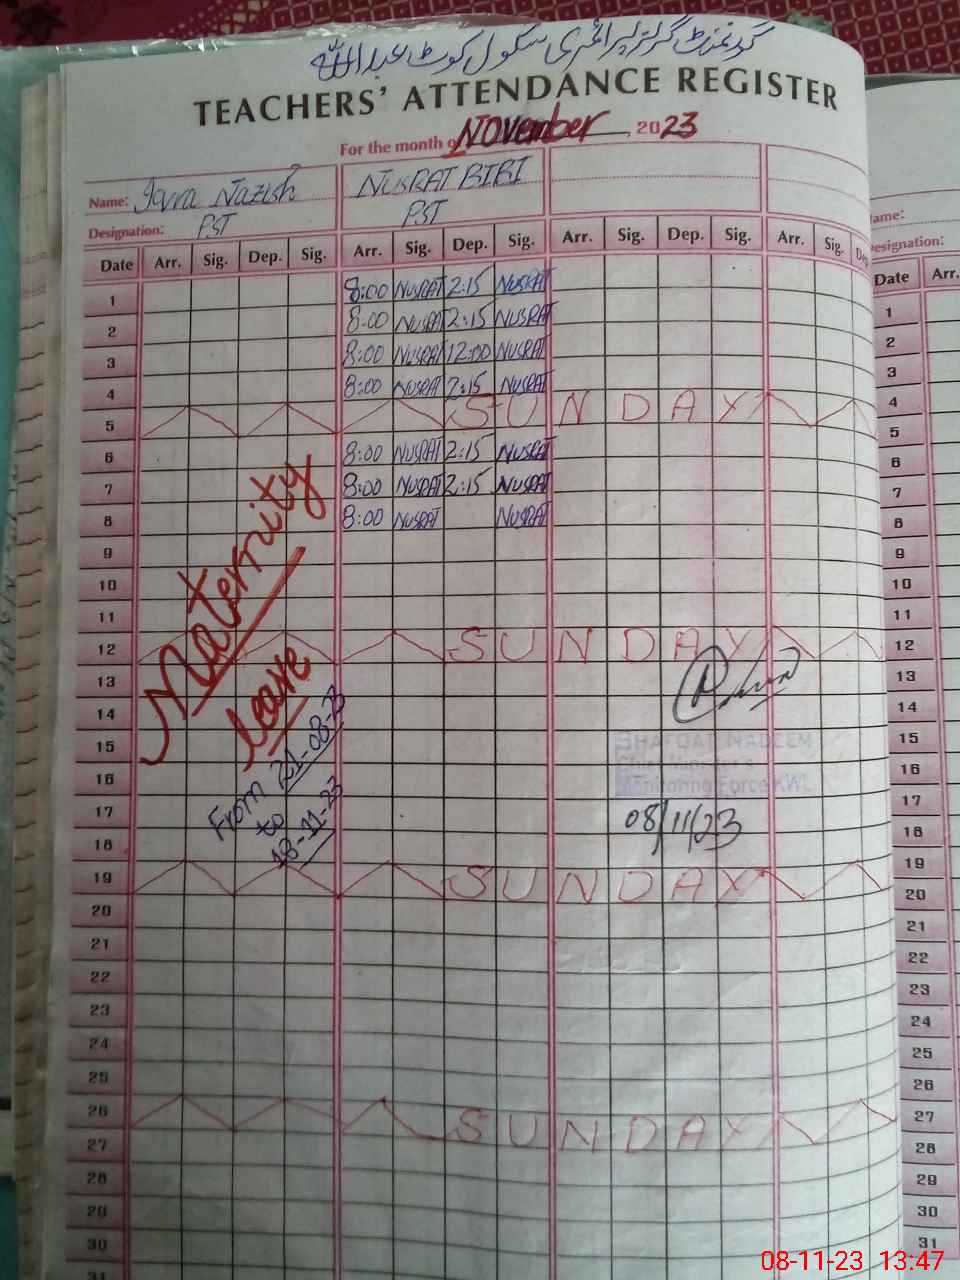 گورنمنٹ گرلز پرائمری سکول کوٹ عبداللہ
TEACHERS' ATTENDANCE REGISTER
For the month of November, 2023
Name: Iqra Nazish NUSRAT BIBI
Designation: PST PST
Date Arr. Sig. Dep. Sig. Arr. Sig. Dep. Sig. Arr. Sig. Dep. Sig. Arr. Sig. Dep
1 8:00 NUSRAT 2:15 NUSRAT
2 8:00 NUSRAT 2:15 NUSRAT
3 8:00 NUSRAT 12:00 NUSRAT
4 8:00 NUSRAT 2:15 NUSRAT
5 SUNDAY
6 8:00 NUSRAT 2:15 NUSRAT
7 8:00 NUSRAT 2:15 NUSRAT
8 8:00 NUSRAT NUSRAT
9
10
11
12 SUNDAY
13
14
15
16
17
18
19 SUNDAY
20
21
22
23
24
25
26 SUNDAY
27
28
29
30
31
Maternity
leave
From 21-08-23
to
18-11-23
SHAFQAT NADEEM
Chief Minister's
Monitoring Force KWL
08/11/23
ame:
esignation:
Date Arr.
1
2
3
4
5
6
7
8
9
10
11
12
13
14
15
16
17
18
19
20
21
22
23
24
25
26
27
28
29
30
31
08-11-23 13:47